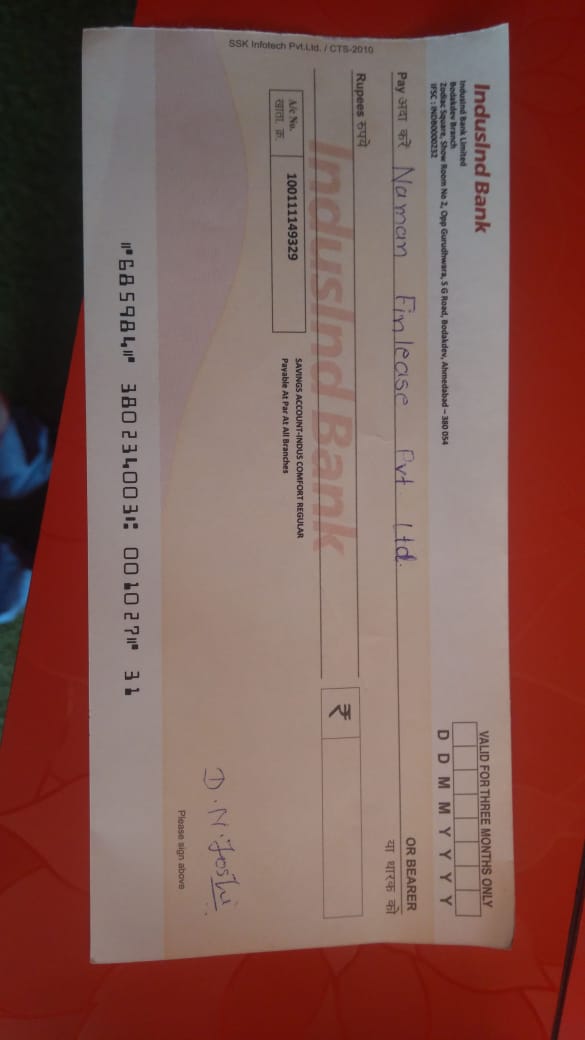 IndusInd Bank
IndusInd Bank Limited
Bodakdev Branch
Zodiac Square, Show Room No 2, Opp Gurudhwara, S G Road, Bodakdev, Ahmedabad – 380 054
IFSC : INDB0000232
VALID FOR THREE MONTHS ONLY
D D M M Y Y Y Y
Pay अदा करें Naman Finlease Pvt Ltd.
OR BEARER
या धारक को
Rupees रुपये
₹
IndusInd Bank
A/c No.
खाता क्र.
100111149329
SAVINGS ACCOUNT-INDUS COMFORT REGULAR
Payable At Par At All Branches
SSK Infotech Pvt.Ltd. / CTS-2010
D.N.Joshi
Please sign above
⑈685984⑈ 380234003⑆ 001027⑈ 31